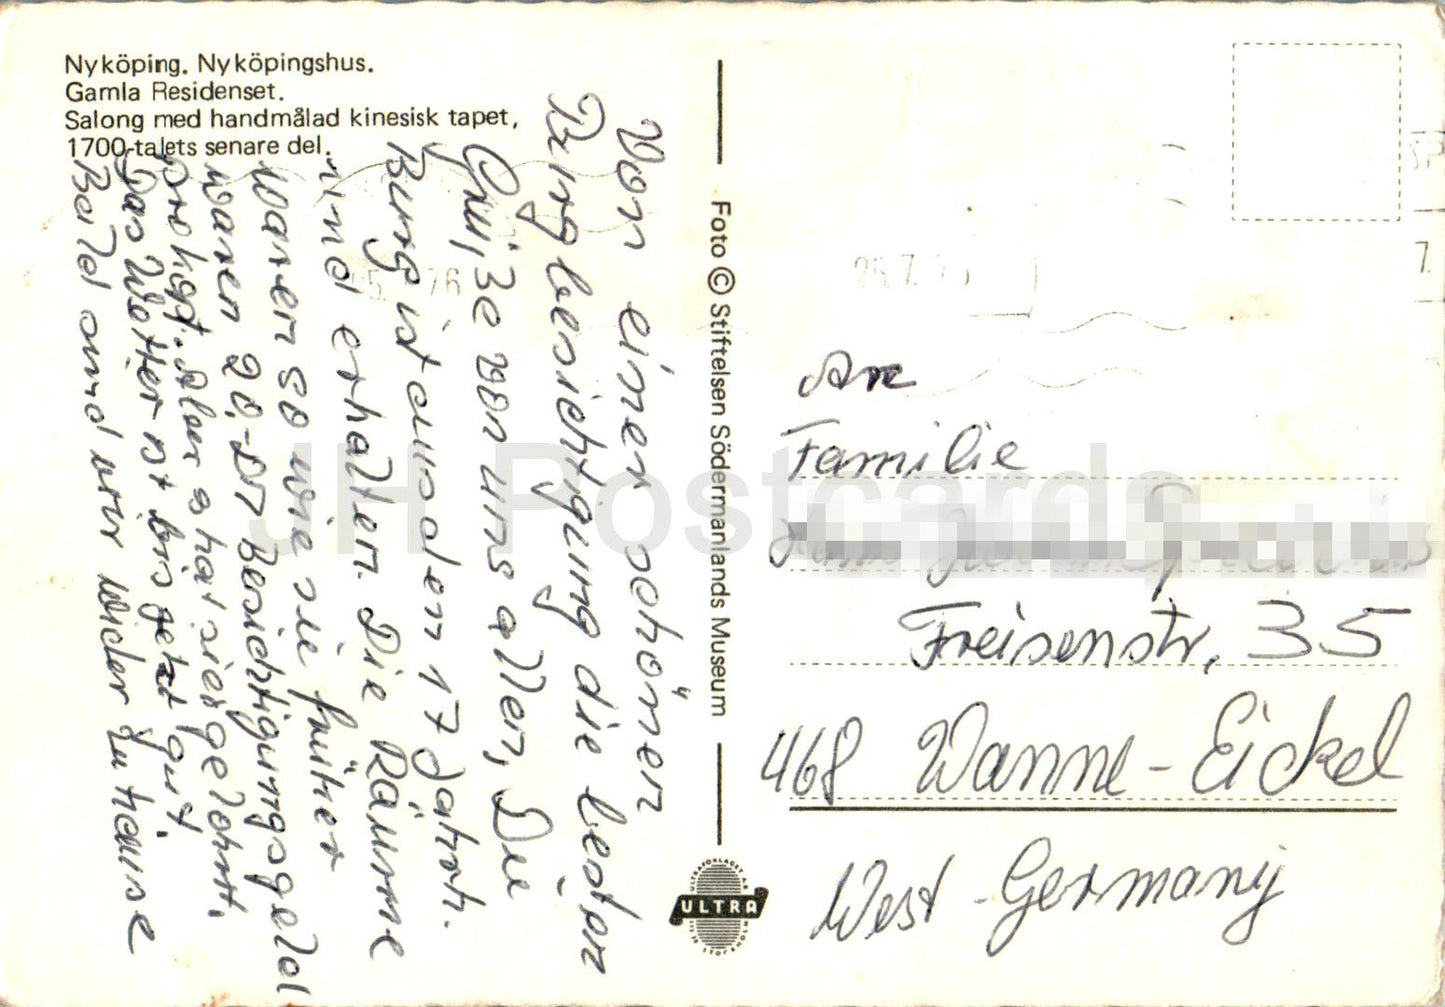 Nyköping. Nyköpingshus.
Gamla Residenset.
Salong med handmålad kinesisk tapet,
1700-talets senare del.
Von einer schönen
Burgbesichtigung die besten
Grüße von uns allen, Die
Burg ist aus dem 17 Jahrh.
und erhalten. Die Räume
waren so wie sie früher
waren 20,-DM Besichtigungsgeld
Aber s hat sich gelohnt.
Das Wetter ist bis jetzt gut.
Bald sind wir wider zu hause
Foto © Stiftelsen Södermanlands Museum
ULTRA
25.7.76
An
Familie
Freisenstr. 35
468 Wanne-Eickel
West-Germany
JH Postcards